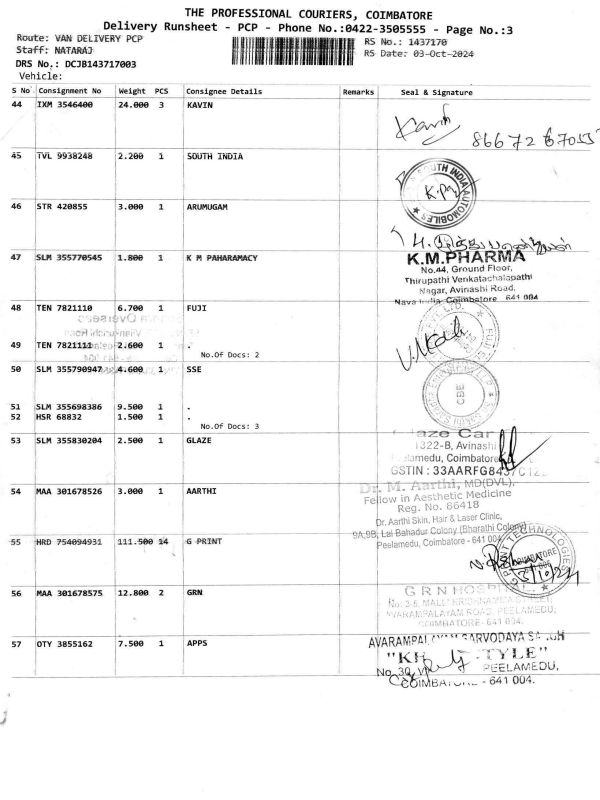 THE PROFESSIONAL COURIERS, COIMBATORE
Delivery Runsheet - PCP - Phone No.:0422-3505555 - Page No.:3
Route: VAN DELIVERY PCP
RS No.: 1437170
Staff: NATARAJ
RS Date: 03-Oct-2024
DRS No.: DCJB143717003
Vehicle:
S No Consignment No Weight PCS Consignee Details Remarks Seal & Signature
44 IXM 3546400 24.000 3 KAVIN
Kavin
45 TVL 9938248 2.200 1 SOUTH INDIA
SOUTH INDIA AUTOMOBILES
46 STR 420855 3.000 1 ARUMUGAM
47 SLM 355770545 1.800 1 K M PAHARAMACY
K.M.PHARMA
No.44, Ground Floor,
Thirupathi Venkatachalapathi
Nagar, Avinashi Road,
Nava India, Coimbatore 641 004
48 TEN 7821110 6.700 1 FUJI
49 TEN 7821111 2.600 1 .
No.Of Docs: 2
50 SLM 355790947 4.600 1 SSE
CBE
51 SLM 355698386 9.500 1 .
52 HSR 68832 1.500 1 .
No.Of Docs: 3
53 SLM 355830204 2.500 1 GLAZE
1322-B, Avinashi
Coimbatore
GSTIN : 33AARFG8437C12
54 MAA 301678526 3.000 1 AARTHI
Dr. M. Aarthi, MD(DVL),
Fellow in Aesthetic Medicine
Reg. No. 86418
Dr. Aarthi Skin, Hair & Laser Clinic,
9A,9B, Lal Bahadur Colony (Bharathi Colony)
Peelamedu, Coimbatore - 641 004
55 HRD 754094931 111.500 14 G PRINT
G PRINT TECHNOLOGIES
COIMBATORE
3/10/24
56 MAA 301678575 12.800 2 GRN
G R N HOSPITAL
AVARAMPALAYAM ROAD, PEELAMEDU,
COIMBATORE- 641 004.
57 OTY 3855162 7.500 1 APPS
AVARAMPALAYAM SARVODAYA SANGH
"KH TYLE"
No 30,
PEELAMEDU,
COIMBATORE - 641 004.